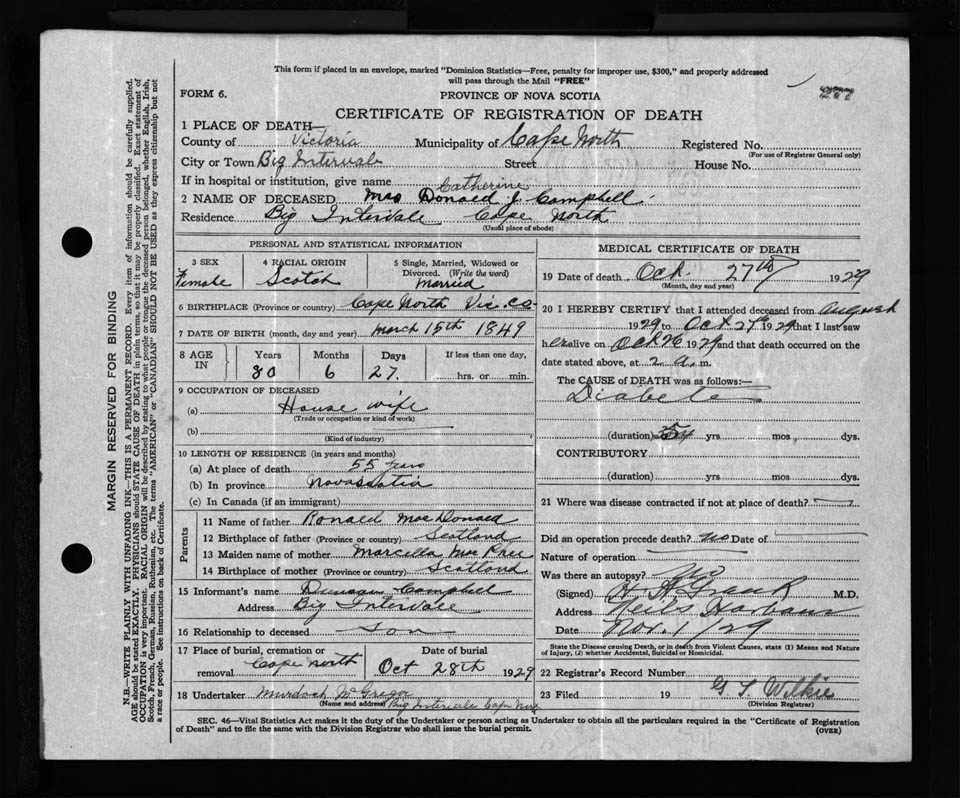 This form if placed in an envelope, marked "Dominion Statistics—Free, penalty for improper use, $300," and properly addressed
will pass through the Mail "FREE"
277
FORM 6.
PROVINCE OF NOVA SCOTIA
CERTIFICATE OF REGISTRATION OF DEATH
1 PLACE OF DEATH—
County of Victoria Municipality of Cape North Registered No.
(For use of Registrar General only)
City or Town Big Intervale Street House No.
If in hospital or institution, give name
Catherine
2 NAME OF DECEASED Mrs Donald J. Campbell
Residence Big Intervale Cape North
(Usual place of abode)
PERSONAL AND STATISTICAL INFORMATION
3 SEX 4 RACIAL ORIGIN 5 Single, Married, Widowed or
Divorced. (Write the word)
Female Scotch Married
6 BIRTHPLACE (Province or country) Cape North Vic. Co.
7 DATE OF BIRTH (month, day and year) March 15th 1849
8 AGE IN Years Months Days If less than one day,
80 6 27. hrs. or min.
9 OCCUPATION OF DECEASED
(a) House wife
(Trade or occupation or kind of work)
(b)
(Kind of industry)
10 LENGTH OF RESIDENCE (in years and months)
(a) At place of death 55 years
(b) In province Nova Scotia
(c) In Canada (if an immigrant)
Parents
11 Name of father Ronald MacDonald
12 Birthplace of father (Province or country) Scotland
13 Maiden name of mother Marcella Mac
14 Birthplace of mother (Province or country) Scotland
15 Informant's name Duncan Campbell
Address Big Intervale
16 Relationship to deceased son
17 Place of burial, cremation or removal Date of burial
Cape North Oct 28th 1929
18 Undertaker Murdoch McGregor
(Name and address) Big Intervale Cape North
MEDICAL CERTIFICATE OF DEATH
19 Date of death Oct. 27th 1929
(Month, day and year)
20 I HEREBY CERTIFY that I attended deceased from August
1929 to Oct 27th 1929 that I last saw
her alive on Oct 26 1929 and that death occurred on the
date stated above, at 2 a. m.
The CAUSE of DEATH was as follows:—
Diabetes
(duration) yrs mos., dys.
CONTRIBUTORY
(duration) yrs mos dys.
21 Where was disease contracted if not at place of death? ?
Did an operation precede death? no Date of
Nature of operation
Was there an autopsy? No
(Signed) M.D.
Address Neils Harbour
Date Nov. 1/29
State the Disease causing Death, or in death from Violent Causes, state (1) Means and Nature
of Injury, (2) whether Accidental, Suicidal or Homicidal.
22 Registrar's Record Number
23 Filed 19 G. T. Wilkie
(Division Registrar)
SEC. 46—Vital Statistics Act makes it the duty of the Undertaker or person acting as Undertaker to obtain all the particulars required in the "Certificate of Registration
of Death" and to file the same with the Division Registrar who shall issue the burial permit.
(OVER)
MARGIN RESERVED FOR BINDING
N.B.—WRITE PLAINLY WITH UNFADING INK—THIS IS A PERMANENT RECORD. Every item of information should be carefully supplied.
AGE should be stated EXACTLY. PHYSICIANS should STATE CAUSE OF DEATH in plain terms, so that it may be properly classified. Exact statement of
OCCUPATION is very important. RACIAL ORIGIN will be described by stating to what people or tongue the deceased person belonged, whether English, Irish,
Scotch, French, German, Russian, Ruthenian, etc. The terms "AMERICAN" or "CANADIAN" SHOULD NOT BE USED as they express citizenship but not
a race or people. See instructions on back of Certificate.